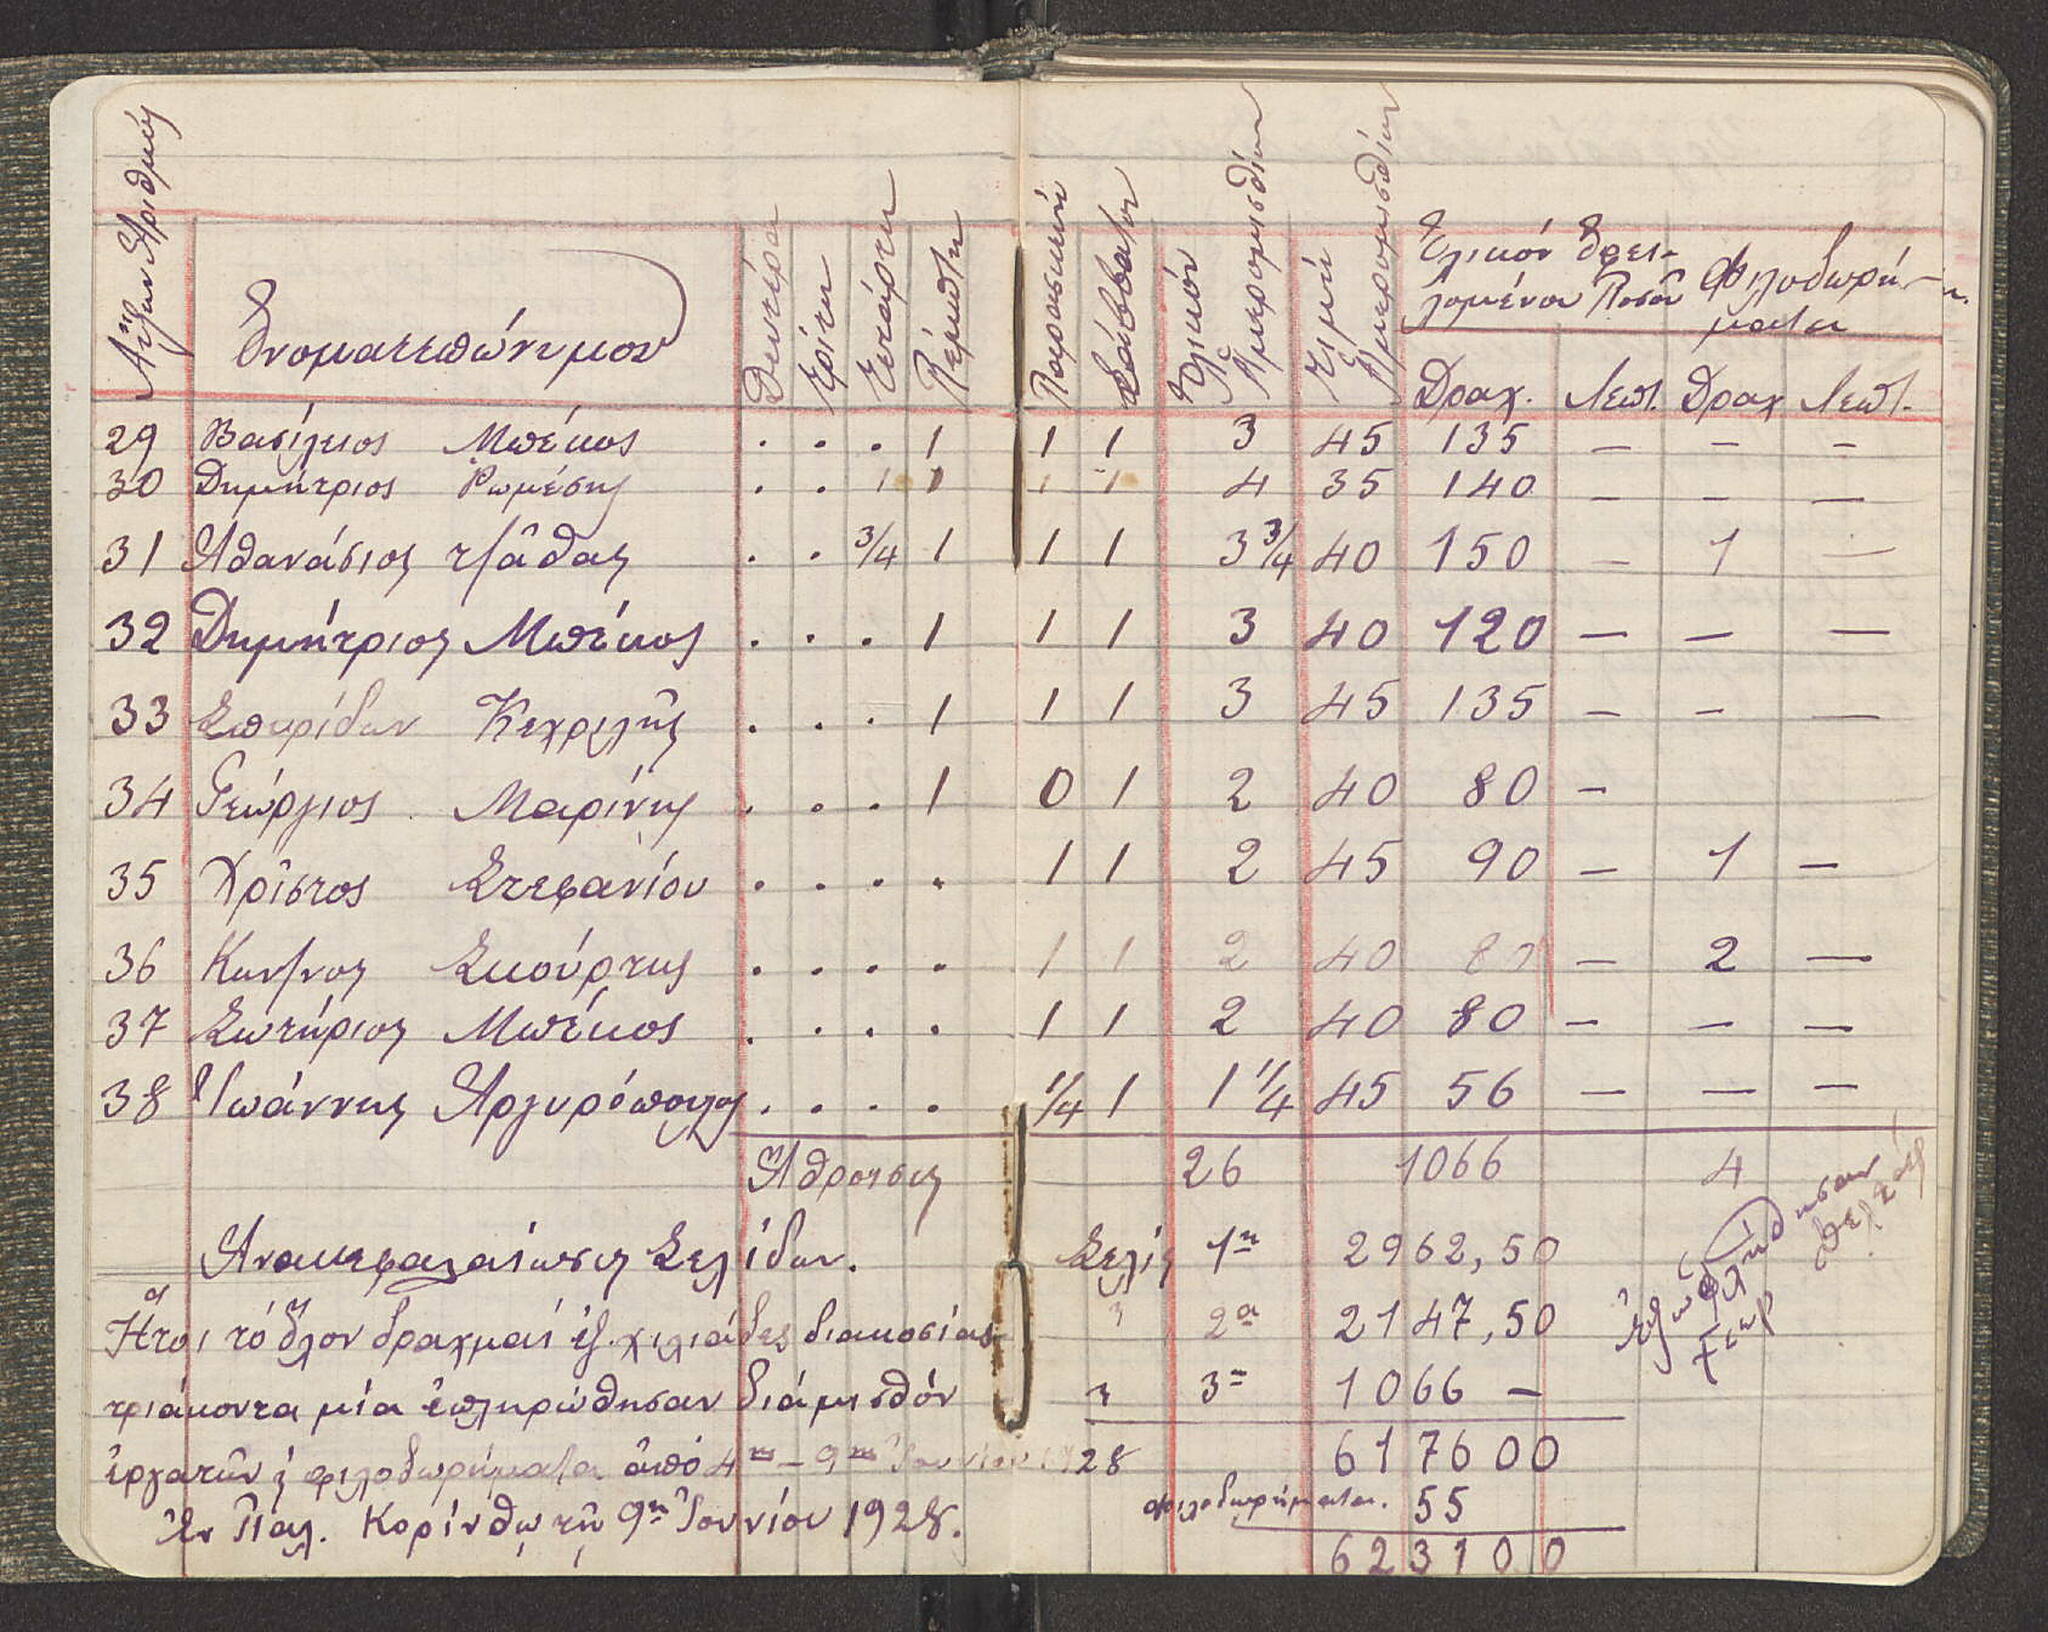 Αὔξων Ἀριθμός Ὀνοματεπώνυμον Δευτέρα Τρίτη Τετάρτη Πέμπτη Παρασκευή Σάββατον Ὁλικόν Ἡμερομισθίων Τιμή Ἡμερομισθίων Ὁλικόν Ὀφει- Φιλοδωρή-
λομένου Ποσοῦ ματα
Δραχ. Λεπτ. Δραχ Λεπτ.
29 Βασίλειος Μπέκος . . . 1 1 1 3 45 135 — — —
30 Δημήτριος Ρωμέσης . . 1 1 1 1 4 35 140 — — —
31 Ἀθανάσιος τζᾶθας . . 3/4 1 1 1 3 3/4 40 150 — 1 —
32 Δημήτριος Μπέκος . . . 1 1 1 3 40 120 — — —
33 Σπυρίδων Κεχριλῆς . . . 1 1 1 3 45 135 — — —
34 Γεώργιος Μαρίνης . . . 1 0 1 2 40 80 —
35 Χρῖστος Στεφανίου . . . . 1 1 2 45 90 — 1 —
36 Κων/νος Σκούρτης . . . . 1 1 2 40 80 — 2 —
37 Σωτήριος Μπέκος . . . . 1 1 2 40 80 — — —
38 Ἰωάννης Ἀργυρόπουλος . . . . 1/4 1 1 1/4 45 56 — — —
Ἄθροισις 26 1066 4
Ἀνακεφαλαίωσις Σελίδων. Σελίς 1η 2962,50
Ἤτοι τό ὅλον δραχμαί ἑξ χιλιάδες διακοσίας " 2α 2147,50
τριάκοντα μία ἐπληρώθησαν διά μισθόν " 3η 1066 —
ἐργατῶν & φιλοδωρήματα ἀπό 4ης – 9ης Ἰουνίου 1928 617600
φιλοδωρήματα. 55
Ἐν Παλ. Κορίνθῳ τῇ 9ῃ Ἰουνίου 1928. 623100